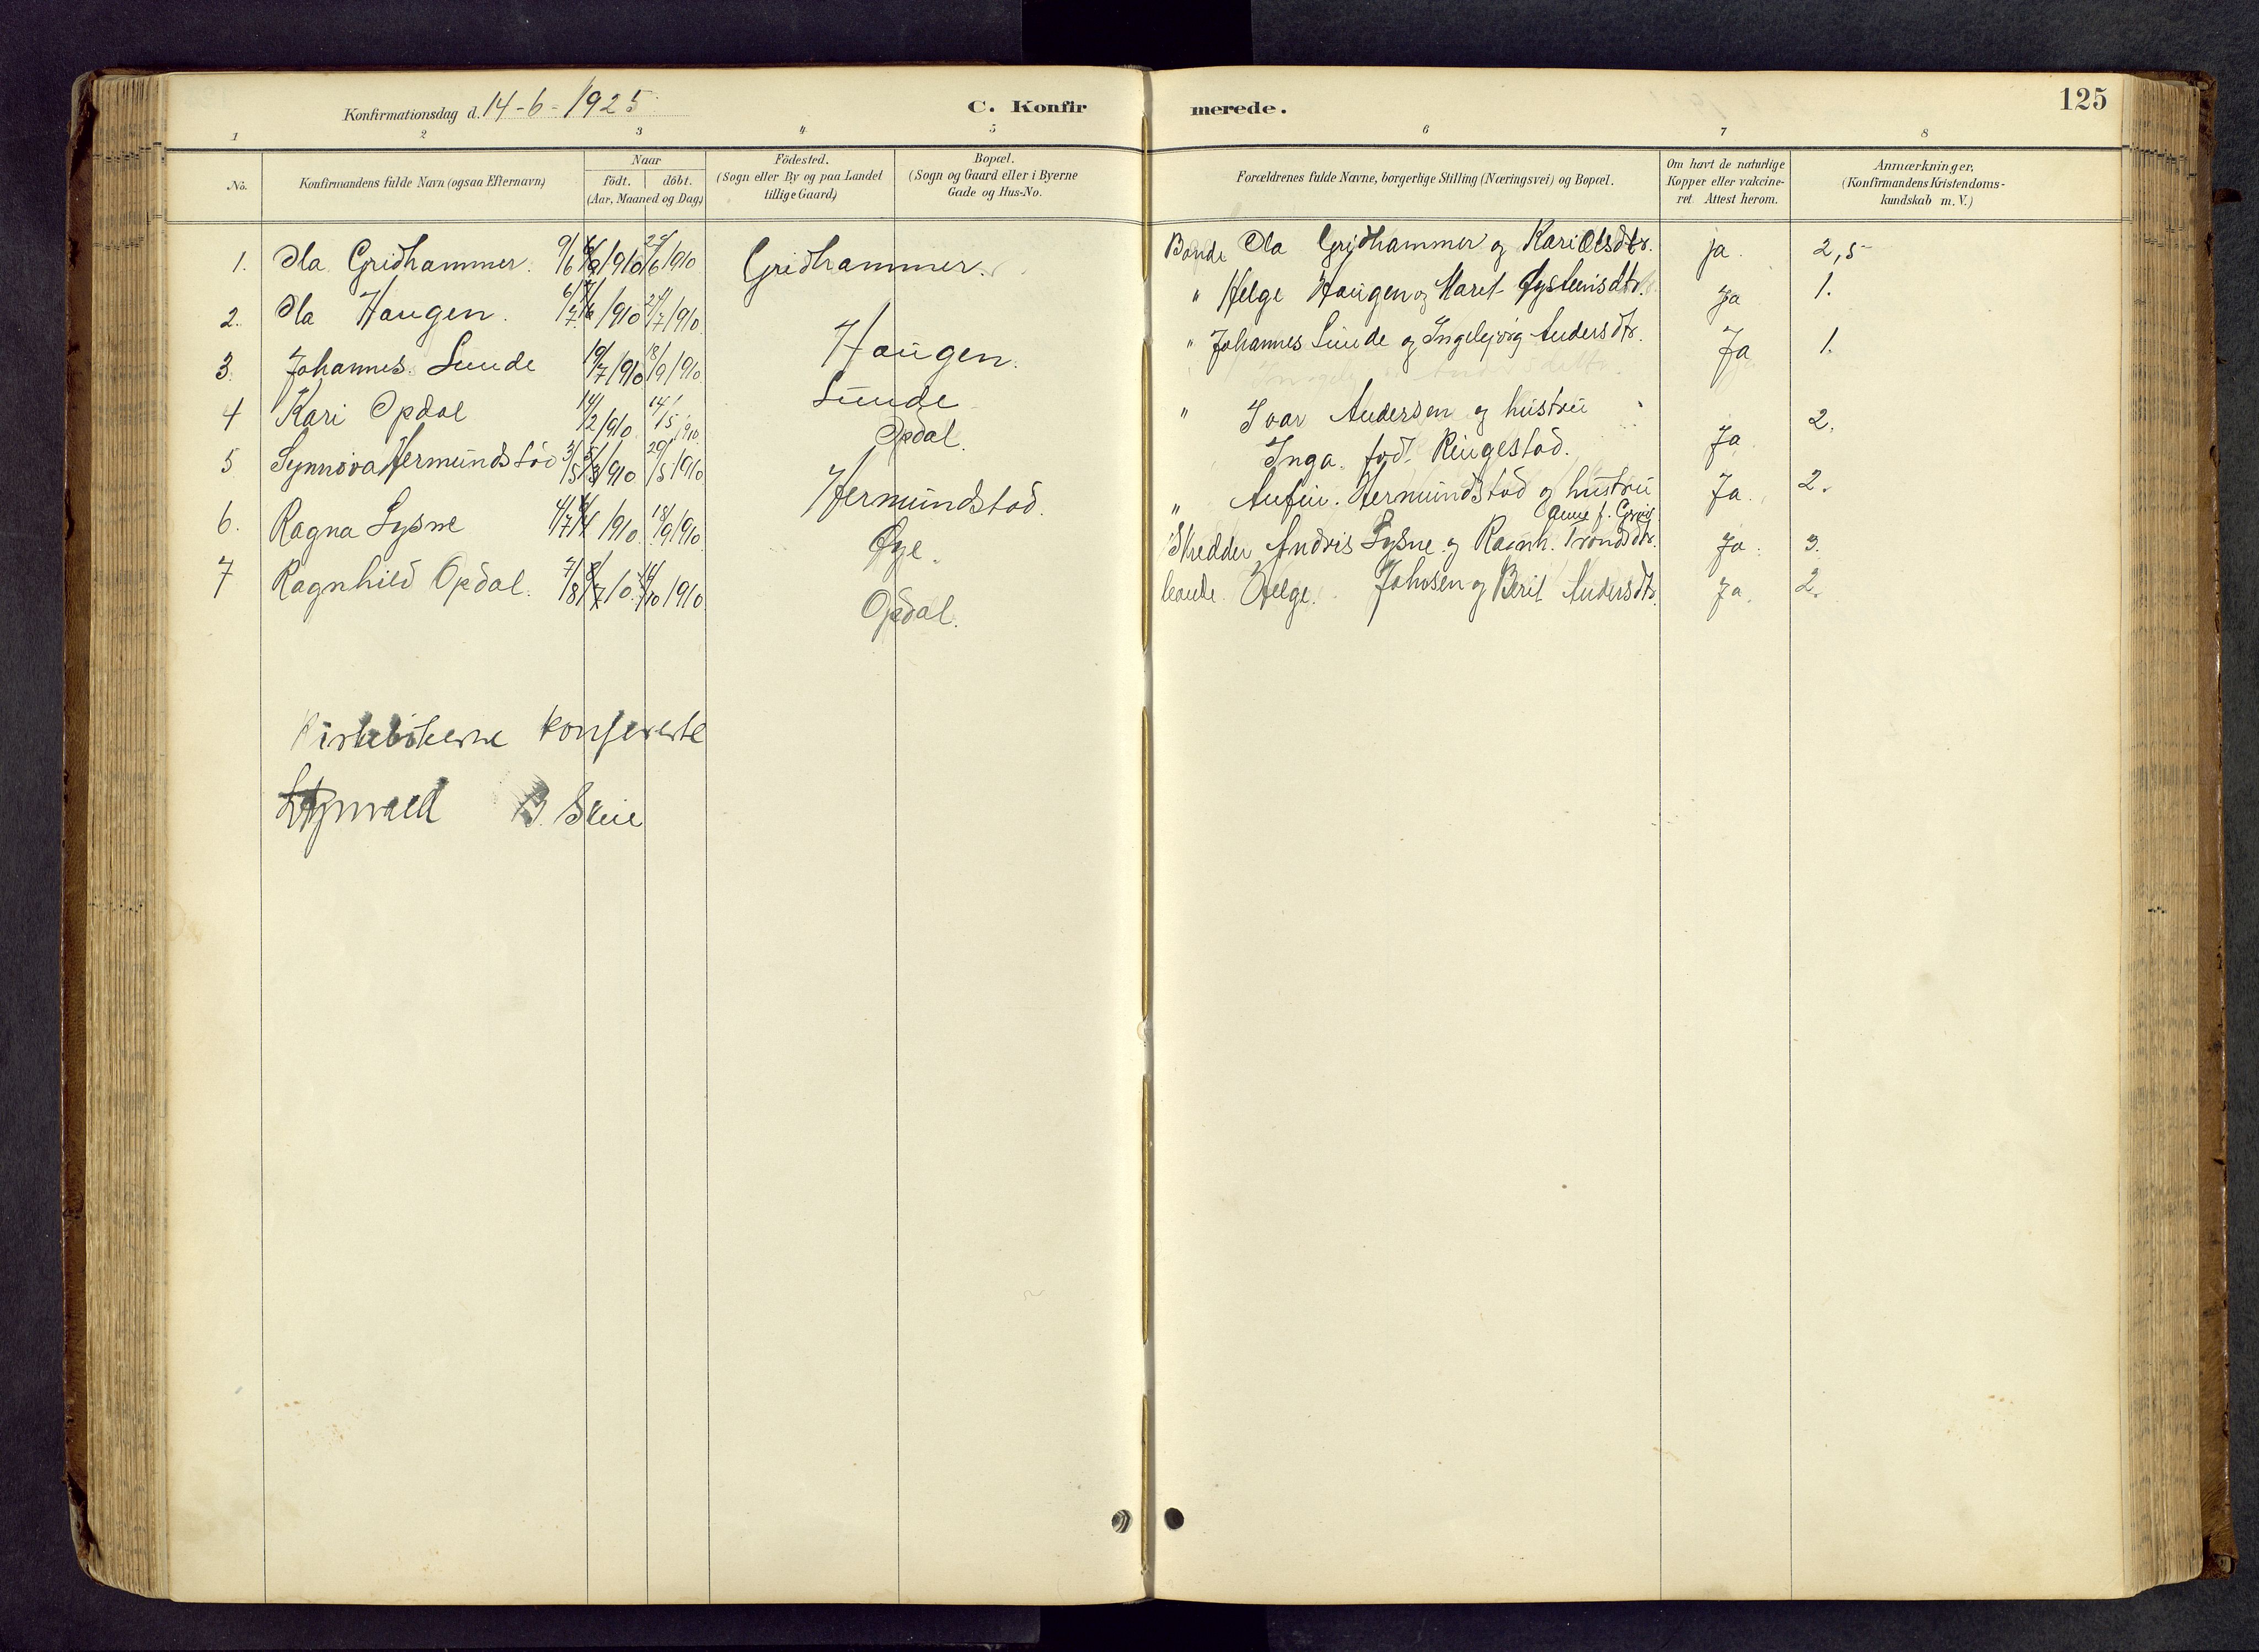 Konfirmationsdag d. 14-6-1925
C. Konfirmerede.
125
1 2 3 4 5 6 7 8
No. Konfirmandens fulde Navn (ogsaa Efternavn) Naar födt. döbt. (Aar, Maaned og Dag) Födested. (Sogn eller By og paa Landet tillige Gaard) Bopæl. (Sogn og Gaard eller i Byerne Gade og Hus-No. Forældrenes fulde Navne, borgerlige Stilling (Næringsvei) og Bopæl. Om havt de naturlige Kopper eller vakcineret. Attest herom. Anmærkninger, (Konfirmandens Kristendomskundskab m.V.)
1. Ola Gridhammer. 9/6 1910 6/1910 Gridhammer. Bonde Ola Gridhammer og Kari Olsdtr. ja. 2,5
2. Ola Haugen. 6/7 1910 7/1910 Haugen. " Helge Haugen og Marit Øysteinsdtr. Ja 1.
3. Johannes Lunde 19/7 1910 18/9 1910 Lunde " Johannes Lunde og Ingebjørg Andersdtr. Ja 1.
4 Kari Opdal 14/2 1910 14/5 1910 Opdal. " Ivar Andersen og hustru
Inga. fød. Ringestad. Ja 2.
5 Synnøva Hermundstad 3/5 1910 29/5 1910 Hermundstad. " Anfin. Hermundstad og hustru Ja. 2.
Anne f.
6. Ragna Lysne 4/7 1910 18/9 1910 Øye. Skredder Andris Lysne og Ragnh. Trondsdtr. Ja. 3.
7 Ragnhild Opdal. 7/8 10 /10 1910 Opdal. bonde. Helge. Johnsen og Berit Andersdtr. Ja. 2.
Kirkebökerne konfererte
B. Skeie